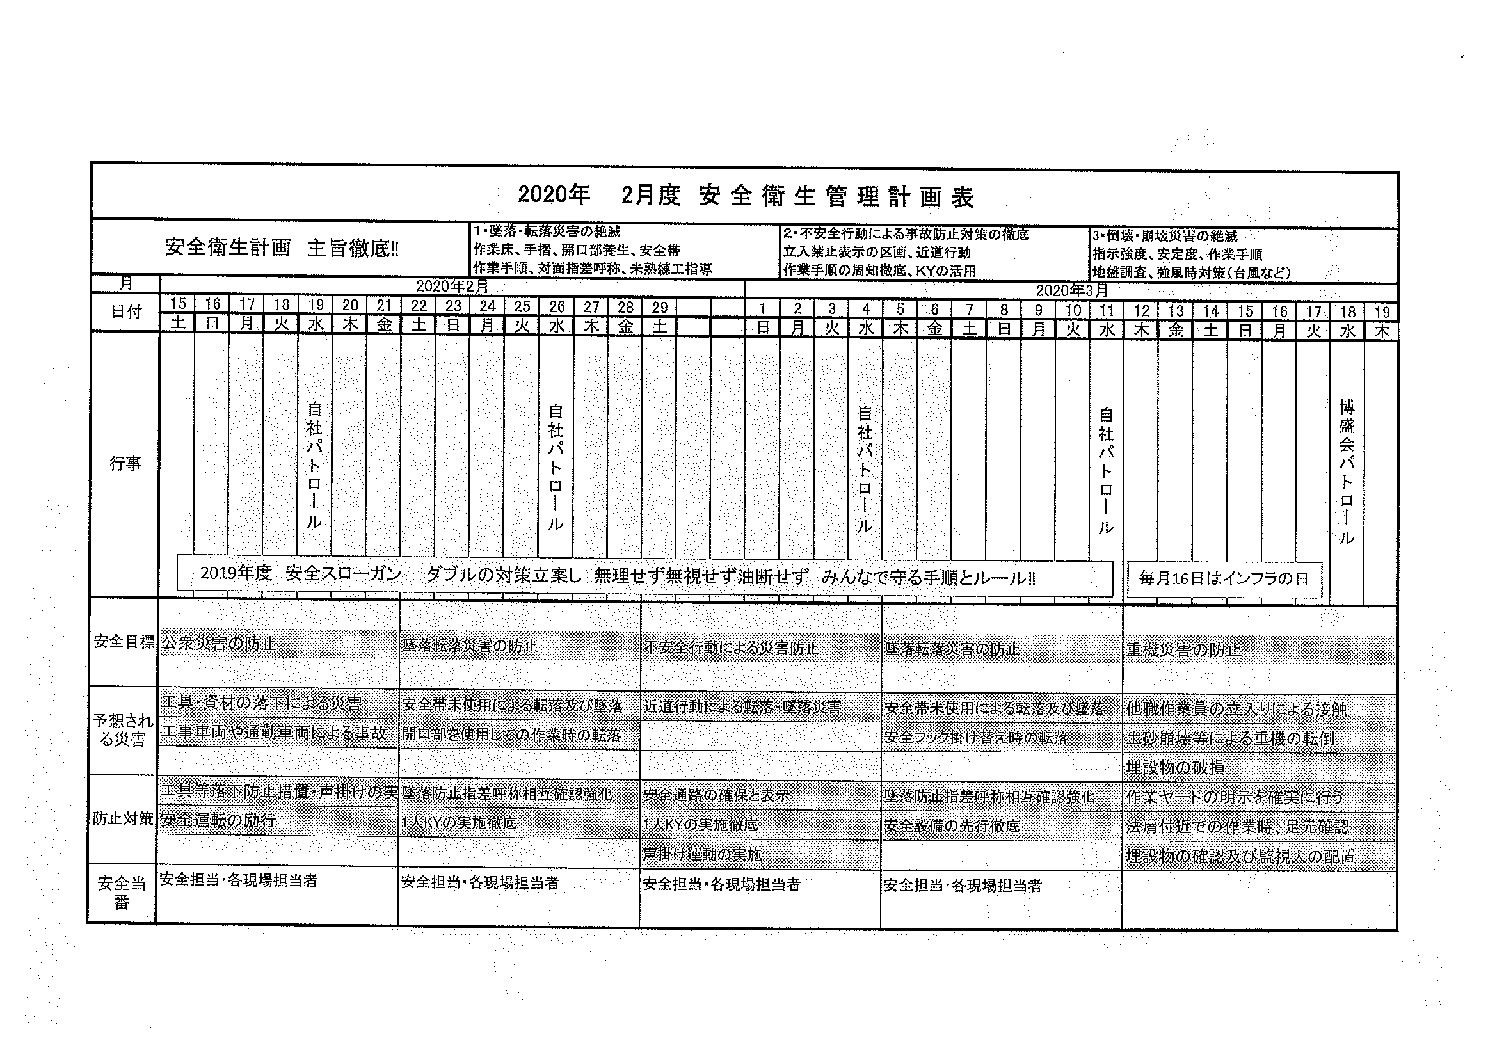 2020年　2月度 安全衛生管理計画表
安全衛生計画　主旨徹底!!
1・墜落・転落災害の絶滅
作業床、手摺、開口部養生、安全帯
作業手順、対面指差呼称、未熟練工指導
2・不安全行動による事故防止対策の徹底
立入禁止表示の区画、近道行動
作業手順の周知徹底、KYの活用
3・倒壊・崩壊災害の絶滅
指示強度、安定度、作業手順
地盤調査、強風時対策(台風など)
月 2020年2月 2020年3月
日付 15 16 17 18 19 20 21 22 23 24 25 26 27 28 29 1 2 3 4 5 6 7 8 9 10 11 12 13 14 15 16 17 18 19
土 日 月 火 水 木 金 土 日 月 火 水 木 金 土 日 月 火 水 木 金 土 日 月 火 水 木 金 土 日 月 火 水 木
行事
自社パトロール
自社パトロール
自社パトロール
自社パトロール
博盛会パトロール
2019年度　安全スローガン　ダブルの対策立案し　無理せず無視せず油断せず　みんなで守る手順とルール!!
毎月16日はインフラの日
安全目標 公衆災害の防止 墜落転落災害の防止 不安全行動による災害防止 墜落転落災害の防止 重機災害の防止
予想される災害
工具・資材の落下による災害 安全帯未使用による転落及び墜落 近道行動による転落・墜落災害 安全帯未使用による転落及び墜落 他職作業員の立入りによる接触
工事車両や通勤車両による事故 開口部を使用しての作業時の転落 安全フック掛け替え時の転落 土砂崩壊等による重機の転倒
埋設物の破損
防止対策
工具等落下防止措置・声掛けの実 墜落防止指差呼称相互確認強化 安全通路の確保と表示 墜落防止指差呼称相互確認強化 作業ヤードの明示を確実に行う
安全運転の励行 1人KYの実施徹底 1人KYの実施徹底 安全設備の先行徹底 法肩付近での作業時、足元確認
声掛け運動の実施 埋設物の確認及び監視人の配置
安全当番 安全担当・各現場担当者 安全担当・各現場担当者 安全担当・各現場担当者 安全担当・各現場担当者